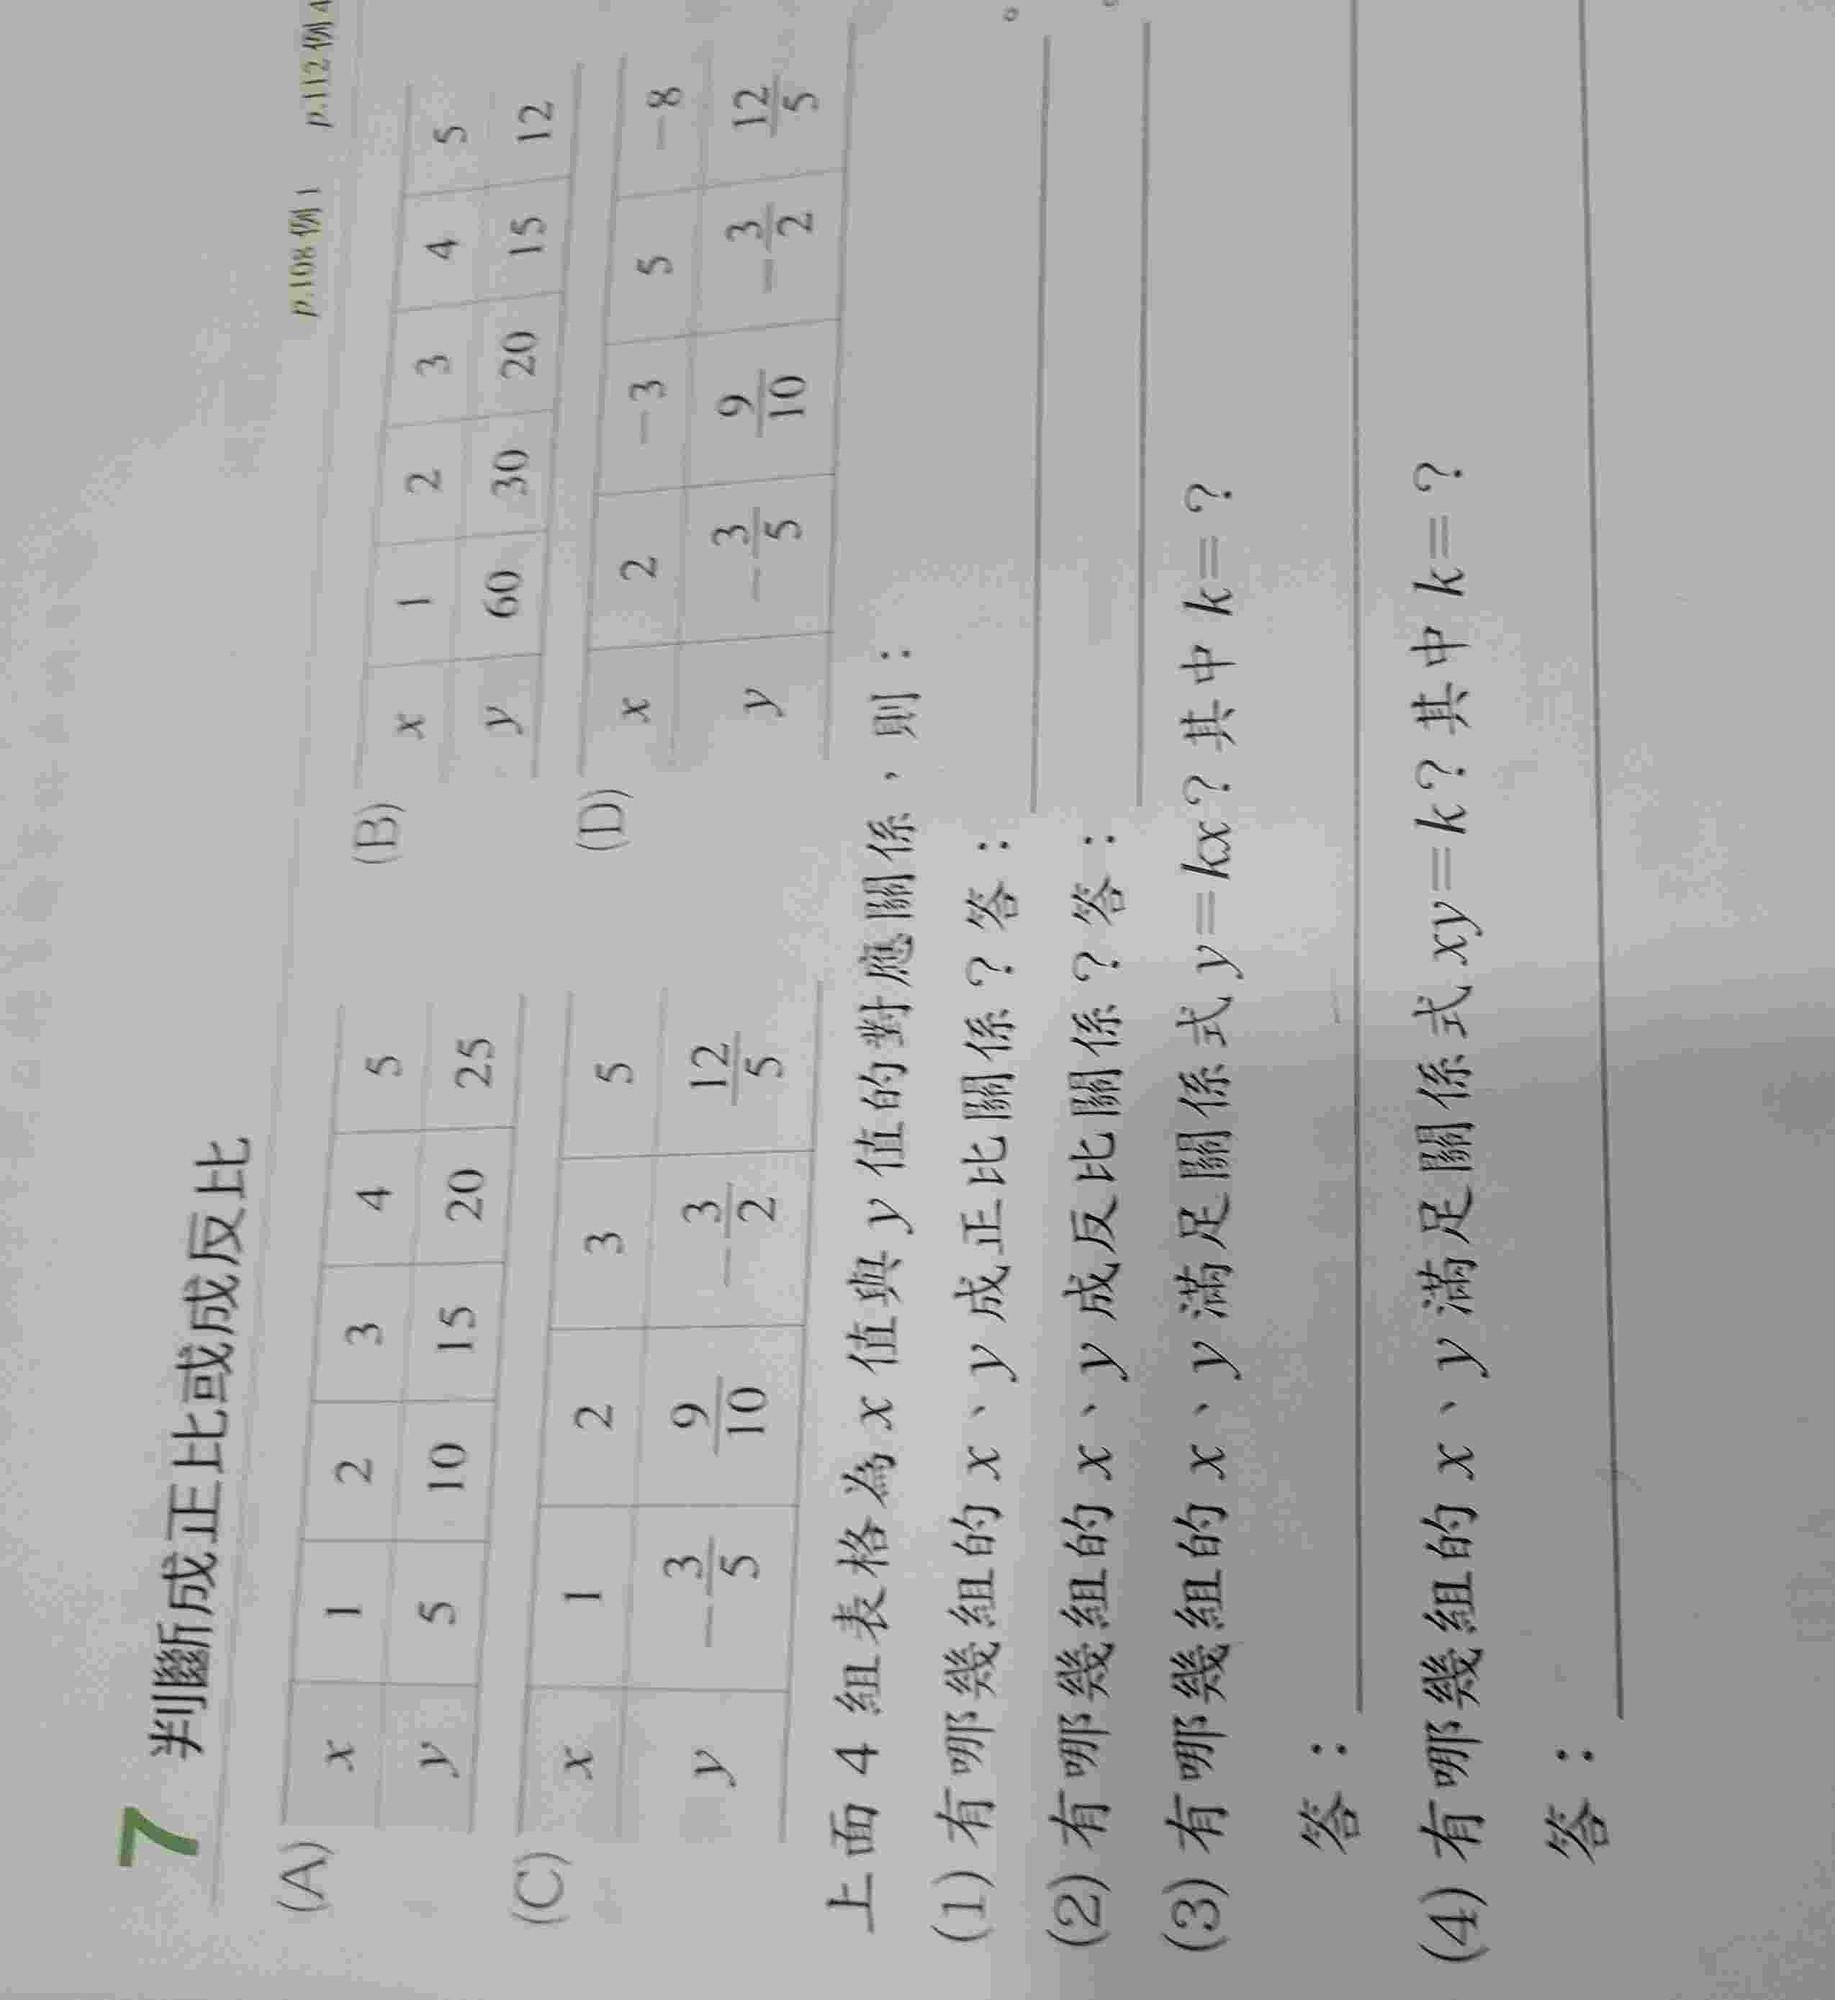 p.108例1 p.112例4
7 判斷成正比或成反比
(A)
x 1 2 3 4 5
y 5 10 15 20 25
(B)
x 1 2 3 4 5
y 60 30 20 15 12
(C)
x 1 2 3 5
y −3/5 9/10 −3/2 12/5
(D)
x 2 −3 5 −8
y −3/5 9/10 −3/2 12/5
上面 4 組表格為 x 值與 y 值的對應關係，則：
(1) 有哪幾組的 x、y 成正比關係？答：。
(2) 有哪幾組的 x、y 成反比關係？答：
(3) 有哪幾組的 x、y 滿足關係式 y=kx？其中 k=？
答：
(4) 有哪幾組的 x、y 滿足關係式 xy=k？其中 k=？
答：